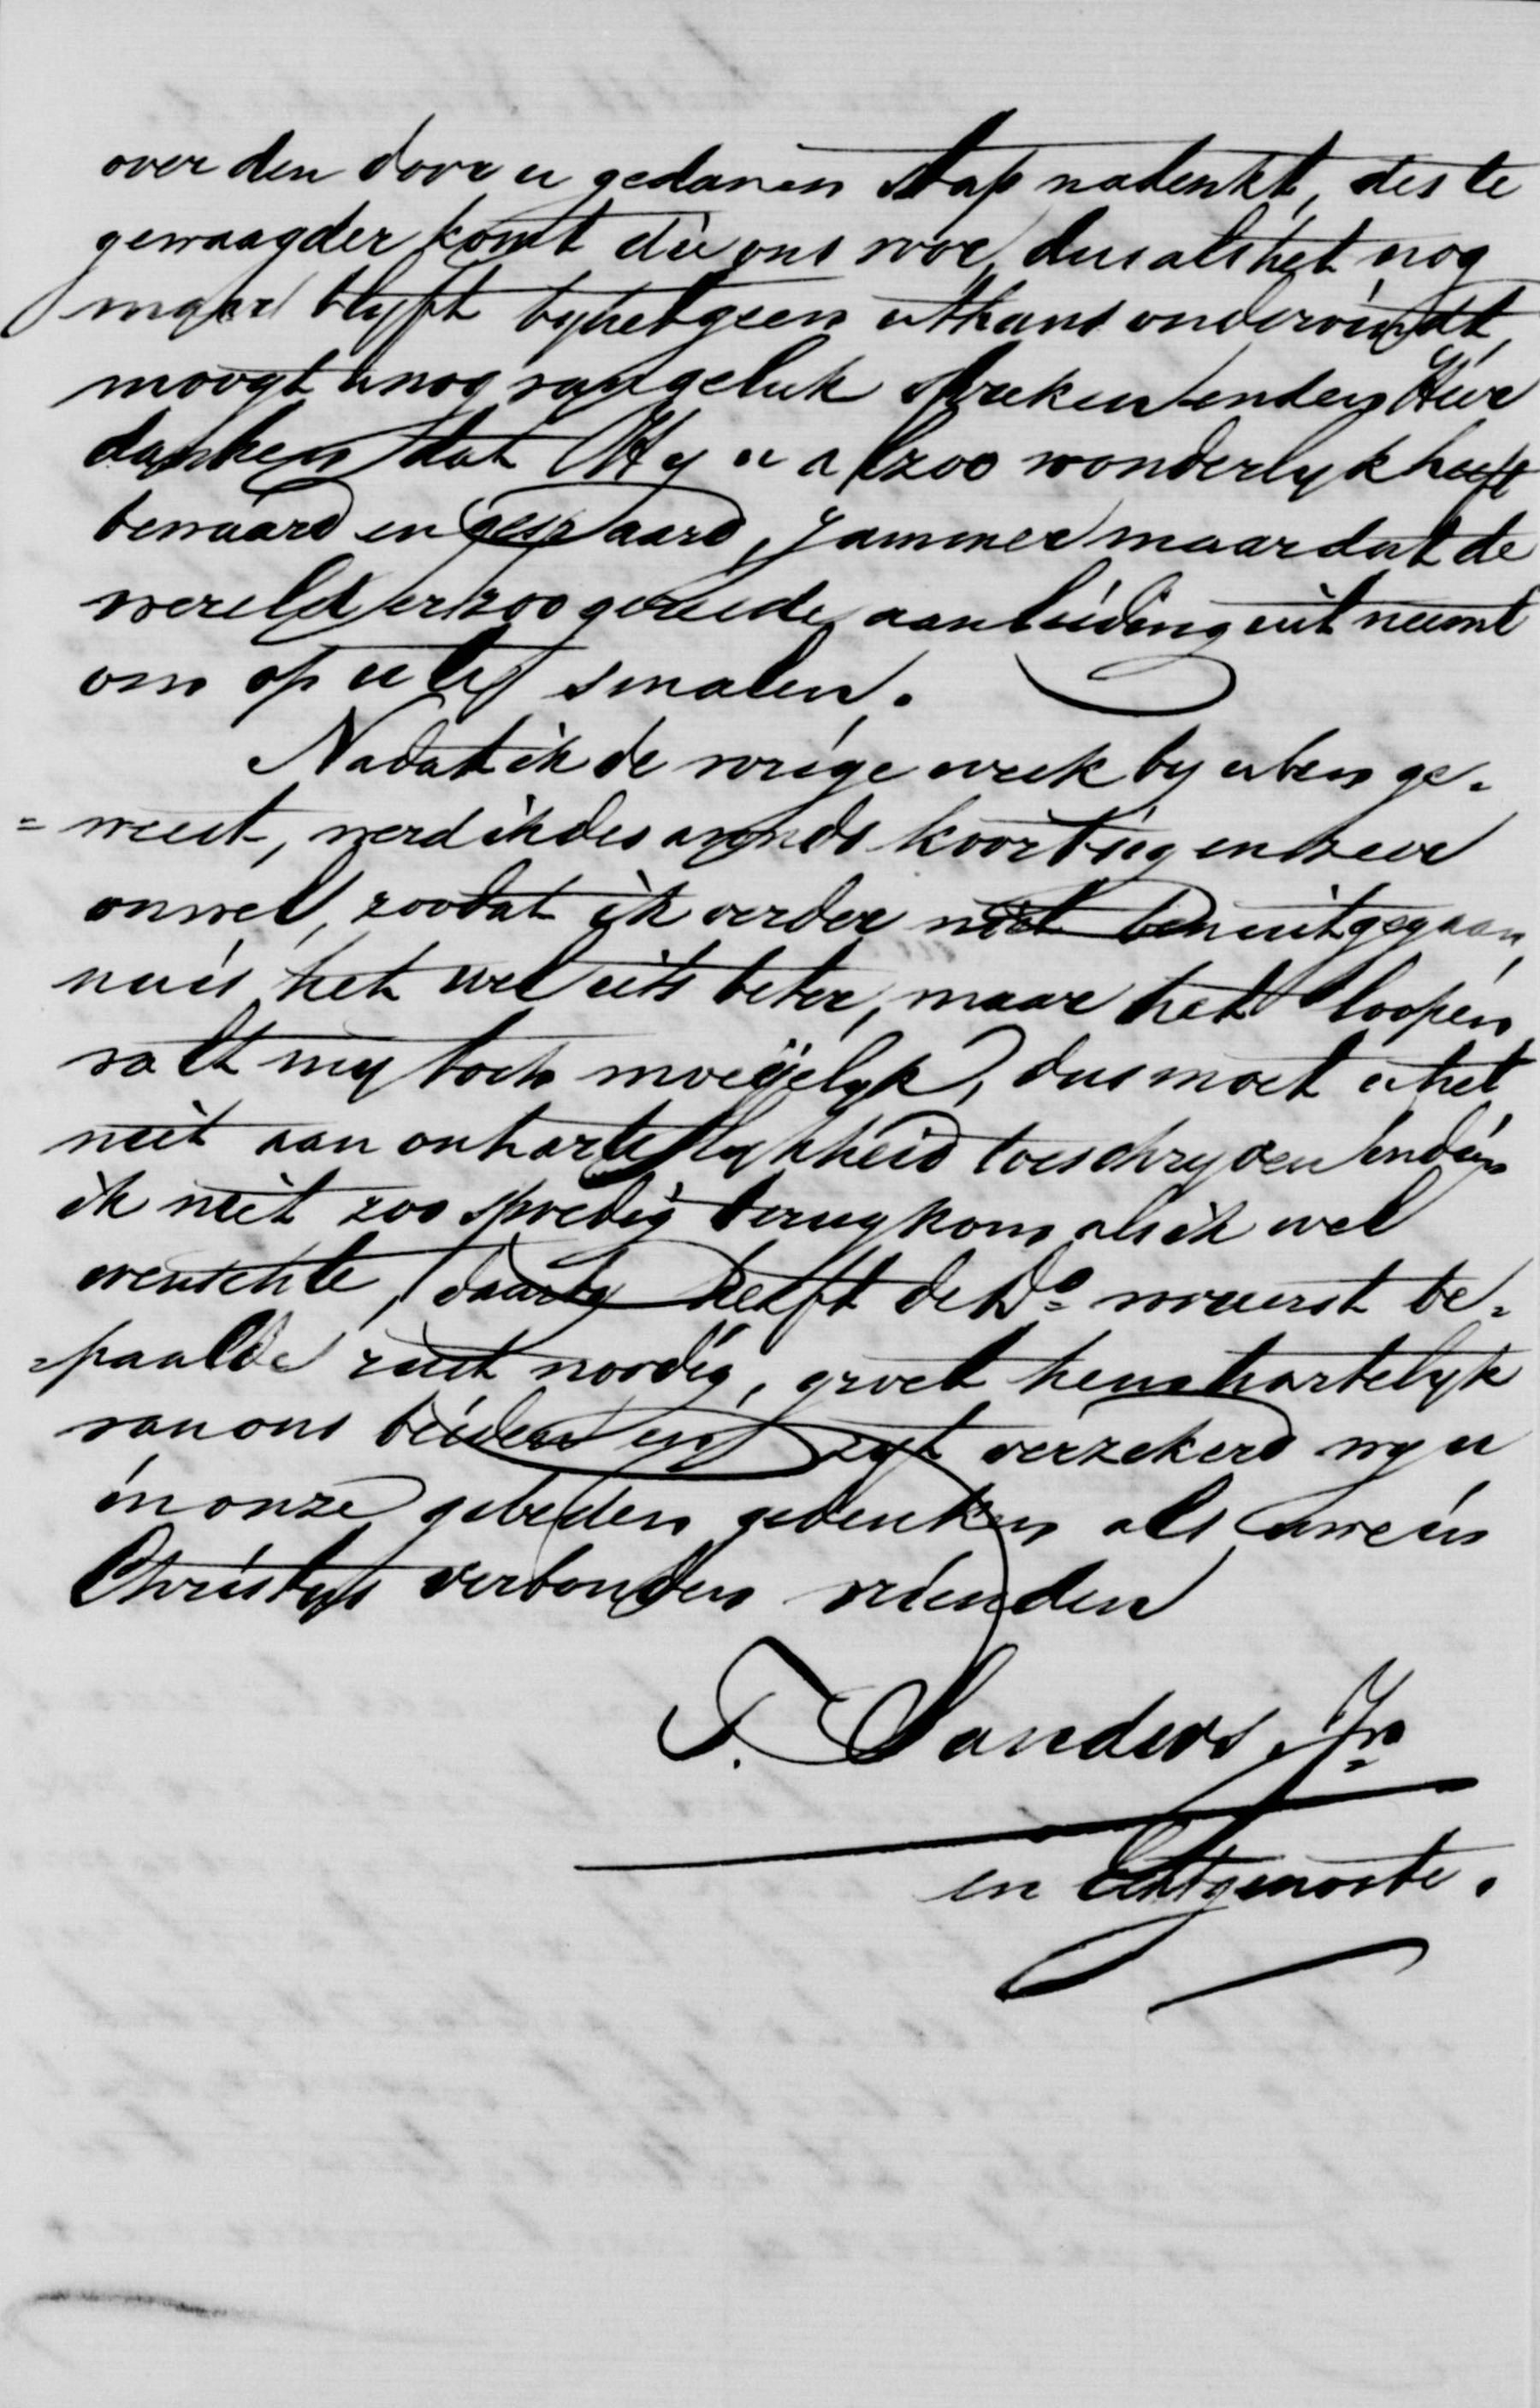 over den door u gedanen stap nadenkt, des te
gewaagder komt die ons voor, dus als het nog
maar blyft by hetgeen u thans ondervindt,
moogt u nog van geluk spreken en den Heer
danken dat Hy u alzoo wonderlyk heeft
bewaard en gespaard, jammer maar dat de
wereld er zoo gereede aanleiding uit neemt
om op u te smalen.
Nadat ik de vorige week by u ben ge-
=weest, werd ik des avonds koortsig en zeer
onwel, zoodat ik verder niet ben uitgegaan,
nu is het wel iets beter, maar het loopen
valt my toch moeijelyk, dus moet u het
niet aan onhartelykheid toeschryven indien
ik niet zoo spoedig terugkom als ik wel
wenschte, daarby heeft de Do. vooreerst be=
=paalde rust noodig, groet hem hartelyk
van ons beiden en zyt verzekerd wy u
in onze gebeden gedenken als uwe in
Christus verbonden vrienden
T. Sanders Jr.
en Echtgenoote.